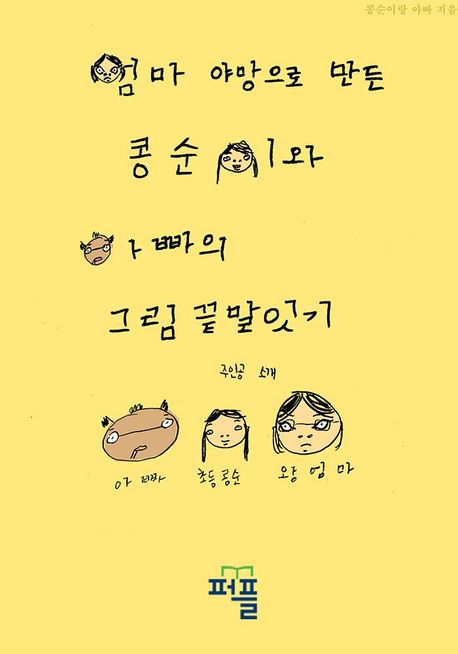 콩순이랑 아빠 지음
엄마 야망으로 만든
콩순이와
아빠의
그림 끝말잇기
주인공 소개
아빠 초등콩순 왕엄마
퍼플